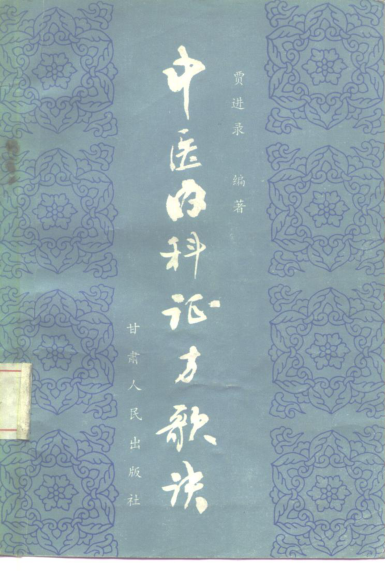 贾进录 编著
中医内科证方歌诀
甘肃人民出版社